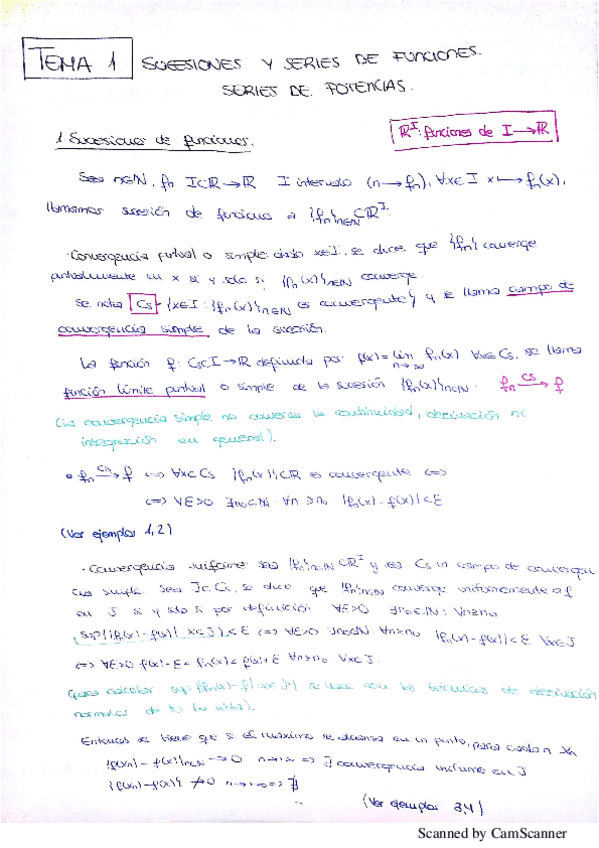 TEMA 1 SUCESIONES Y SERIES DE FUNCIONES.
SERIES DE POTENCIAS.
1. Sucesiones de funciones.
ℝ^I: funciones de I → ℝ
Sea n∈ℕ, fn I⊂ℝ → ℝ I intervalo (n → fn), ∀x∈I x ↦ fn(x),
llamamos sucesión de funciones a {fn}n∈ℕ ⊂ ℝ^I.
· Convergencia puntual o simple: dado x∈I, se dice que {fn} converge
puntualmente en x si y solo si {fn(x)}n∈ℕ converge.
Se nota Cs = {x∈I : {fn(x)}n∈ℕ es convergente} y se llama campo de
convergencia simple de la sucesión.
La función f: Cs⊂I → ℝ definida por f(x) = lim n→∞ fn(x) ∀x∈Cs, se llama
función límite puntual o simple de la sucesión {fn(x)}n∈ℕ. fn —Cs→ f
(La convergencia simple no conserva la continuidad, derivación ni
integración en general).
• fn —Cs→ f ⟺ ∀x∈Cs {fn(x)}⊂ℝ es convergente ⟺
⟺ ∀ε>0 ∃n0∈ℕ ∀n≥n0 |fn(x) - f(x)| < ε
(Ver ejemplos 1,2)
· Convergencia uniforme: sea {fn}n∈ℕ ⊂ ℝ^I y sea Cs un campo de convergen
cia simple. Sea J⊂Cs, se dice que {fn}n∈ℕ converge uniformemente a f
en J si y solo si por definición ∀ε>0 ∃n0∈ℕ: ∀n≥n0
sup{|fn(x) - f(x)| : x∈J} < ε ⟺ ∀ε>0 ∃n0∈ℕ ∀n≥n0 |fn(x) - f(x)| < ε ∀x∈J
⟺ ∀ε>0 f(x) - ε < fn(x) < f(x) + ε ∀n≥n0 ∀x∈J.
(para calcular sup{|fn(x) - f| : x∈J} se hace con las técnicas de derivación
normales de
Entonces se tiene que si el máximo se alcanza en un punto, para cada n xn
{f(xn) - f(xn)}n∈ℕ → 0 n→∞ ⟹ ∃ convergencia uniforme en J
{f(xn) - f(xn)} ↛ 0 n→∞ ⟹ ∄
(Ver ejemplos 3,4)
Scanned by CamScanner